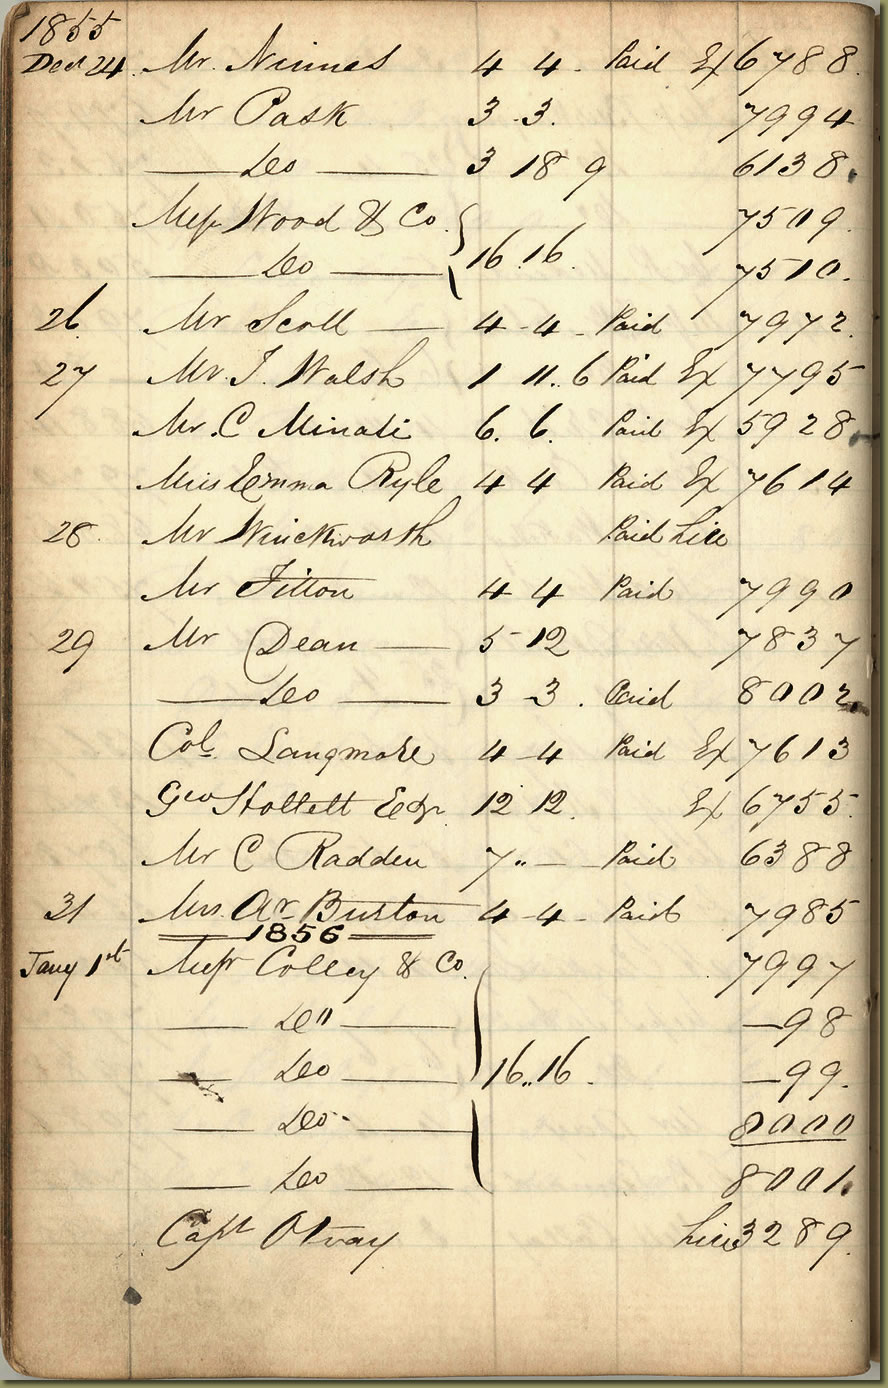 1855
Decr 24. Mr. Nimes 4 4 - Paid Ex 6788.
Mr Pask 3 - 3. 7994
— Do — 3 18 9 6138.
Messrs Wood & Co. 7509.
— Do — 16. 16. 7510.
26. Mr Scott — 4 - 4 - Paid 7972.
27 Mr. J. Walsh 1 11.. 6 Paid Ex 7795
Mr. C Minasi 6. 6. Paid Ex 5928
Miss Emma Ryle 4 4 Paid Ex 7614
28. Mr Winckworth Paid Lice
Mr Fitton 4 4 Paid 7990
29 Mr Dean — 5 - 12 7837
— Do — 3 - 3 . Paid 8002.
Col. Langmore 4 - 4 Paid Ex 7613
Geo Hollett Esqr 12 12. Ex 6755.
Mr C Radden 7 ,, — Paid 6388
31 Mrs. Ar Burton 4 - 4 - Paid 7985
1856
Jany 1st Messrs Colley & Co. 7997
— Do — — 98
— Do — 16.. 16. — 99.
— Do — 8000
— Do — 8001.
Capt Otway Lice 3289.